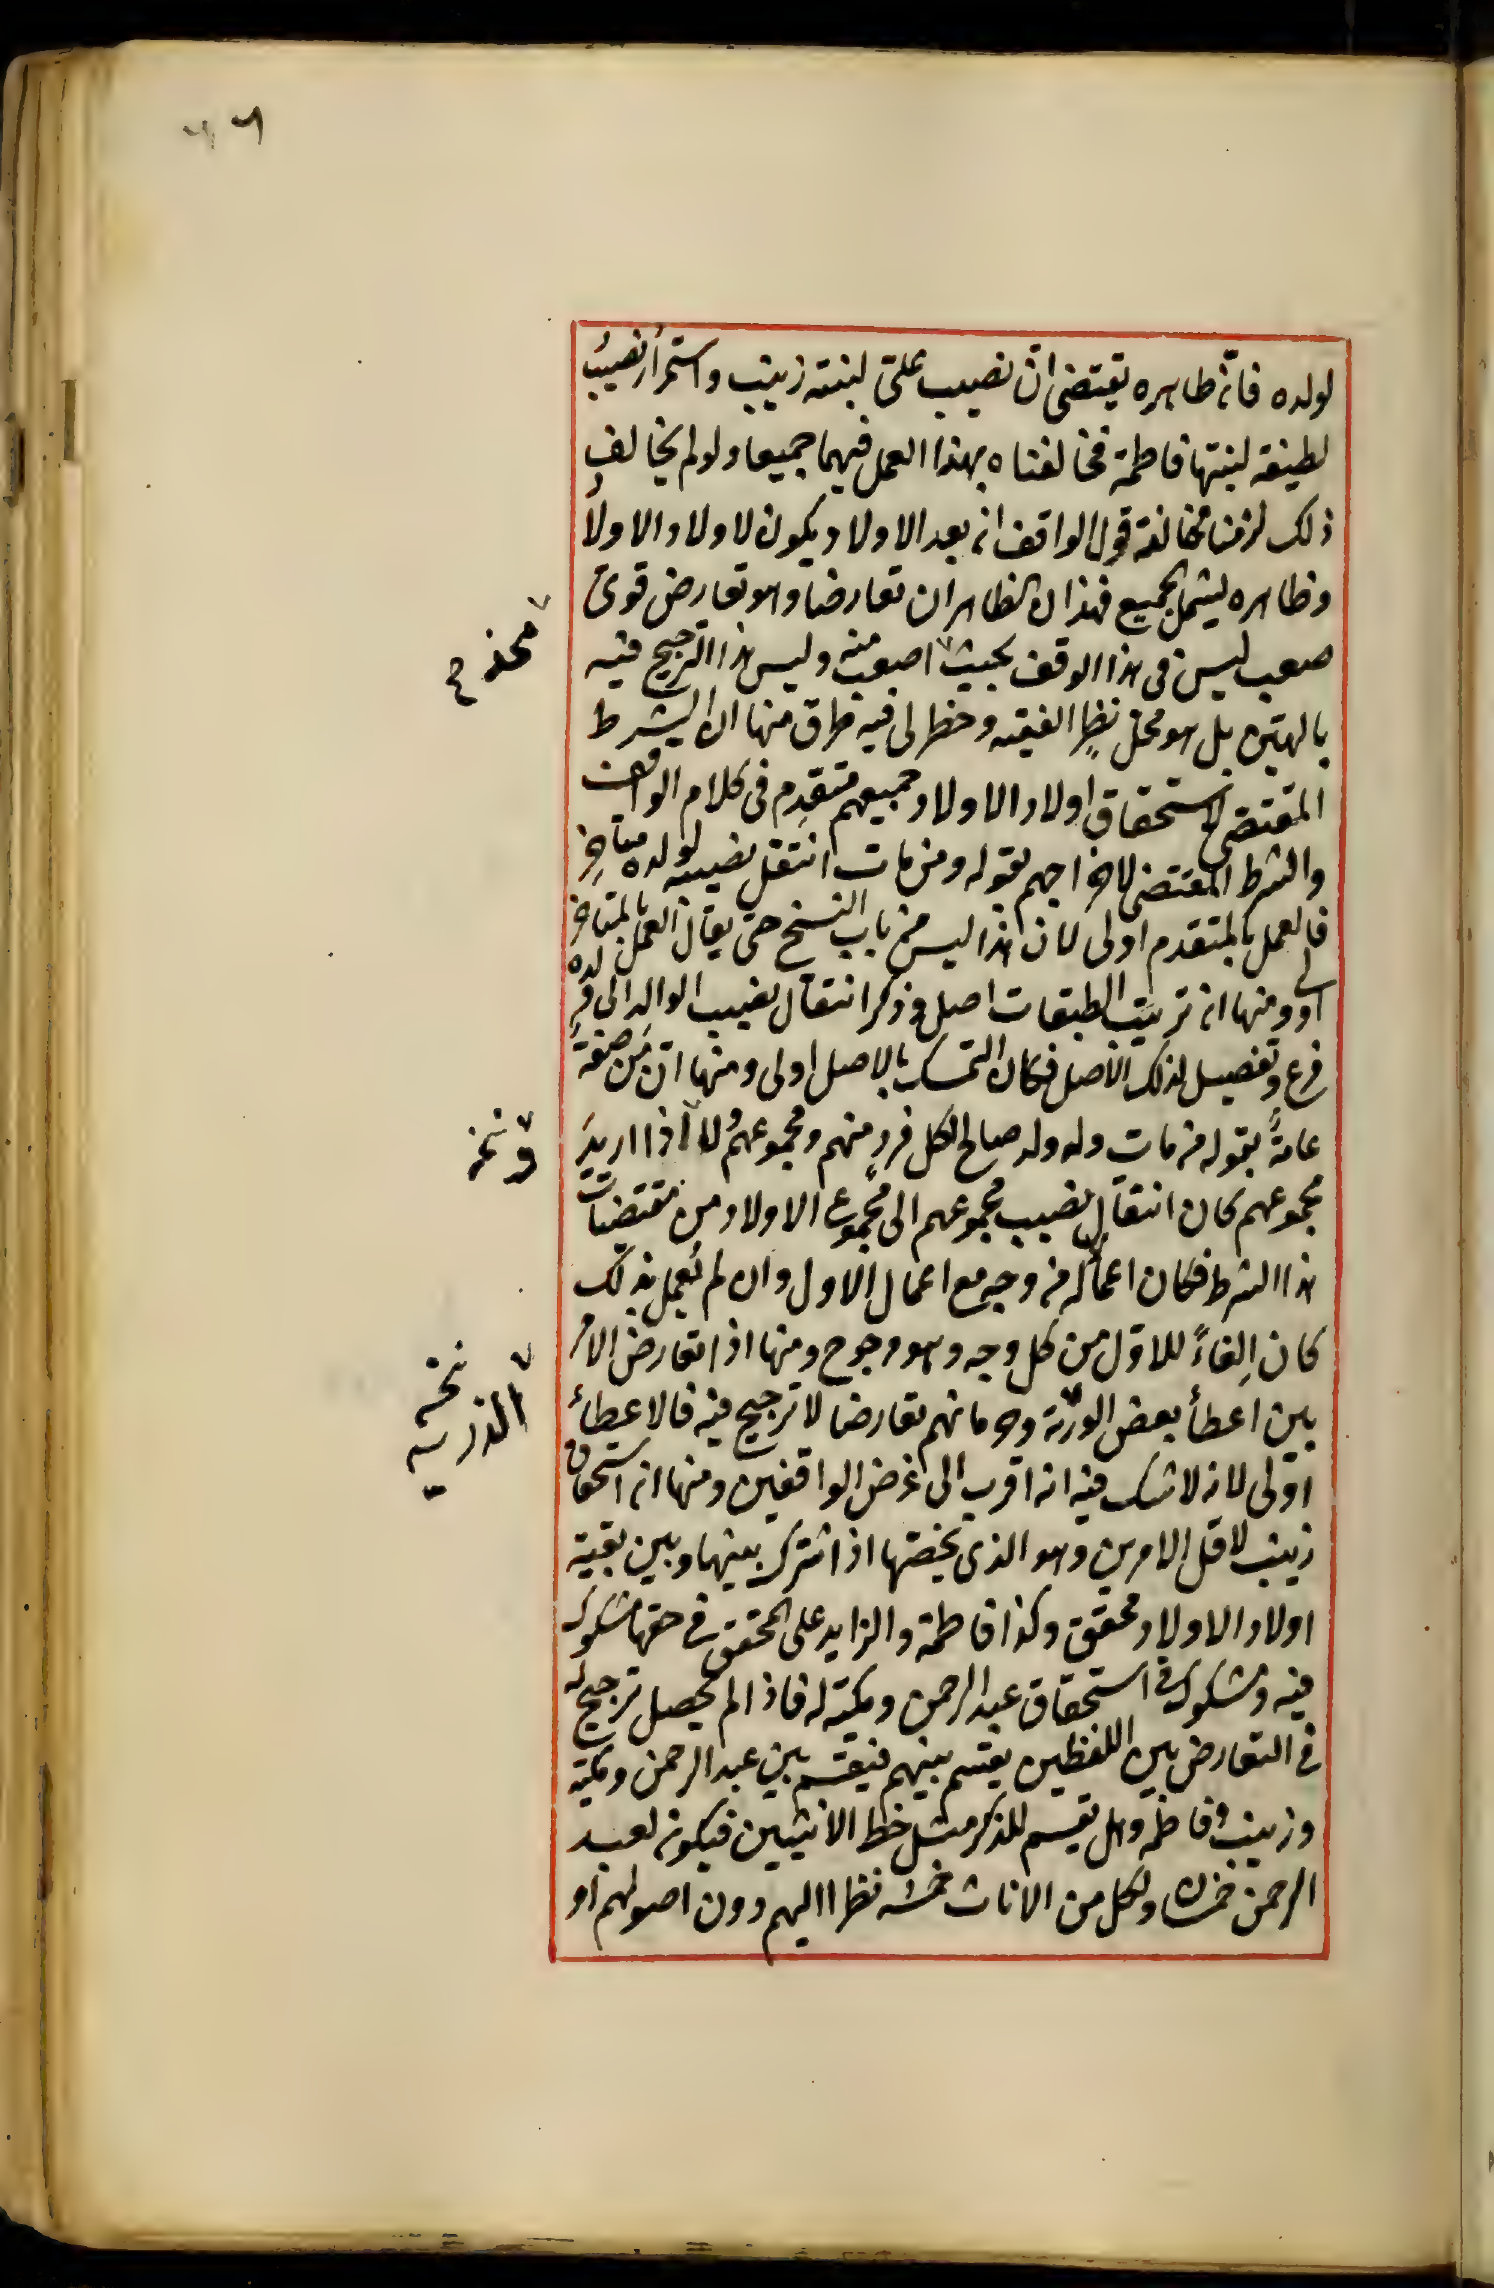 ٦٦
لولده فانّ ظاهره يقتضى ان نصيب علىّ لبنته زينب واستمرار نصيب
لطيفة لبنتها فاطمة فخالفناه بهذا العمل فيهما جميعا ولو لم يخالف
ذلك لزمنا مخالفة قول الواقف انه بعد الاولاد يكون لاولاد الاولاد
وظاهره يشمل الجميع فهذان الظاهران تعارضا وهو تعارض قوىّ
صعب ليس فى هذا الوقف بحيث اصعب منه وليس هذا الترجيح فيه
بالهيّن بل هو محل نظر الفقيه وخطر لى فيه طرق منها ان الشرط
المقتضى لاستحقاق اولاد الاولاد جميعهم متقدم فى كلام الواقف
والشرط المقتضى لاخراجهم بقوله ومن مات انتقل نصيبه لولده متاخر
فالعمل بالمتقدم اولى لان هذا ليس من باب النسخ حتى يقال العمل بالمتاخر
اولى ومنها انه ترتيب الطبقات اصل وذكر انتقال نصيب الوالد الى ولده
فرع وتفصيل لذلك الاصل فكان التمسك بالاصل اولى ومنها انّ مَن صيغة
عامةً بقوله من مات وله ولد صالح لكل فرد منهم ومجموعهم لا اذا اريد
مجموعهم كان انتقال نصيب مجموعهم الى مجموع الاولاد من مقتضيات
هذا الشرط فكان اعماله من وجه مع اعمال الاول وان لم يُعمل بذلك
كان الِغاءً للاوّل من كل وجه وهو مرجوح ومنها اذا تعارض الامر
بين اعطأ بعض الورثة وحرمانهم تعارضا لا ترجيح فيه فالاعطأ
اولى لانه لا شك فيه انه اقرب الى غرض الواقفين ومنها انه استحقاق
زينب لاقل الامرين وهو الذى يخصّها اذا اشترك بينها وبين بقية
اولاد الاولاد محقق وكذا فاطمة والزايد على المحقق فى حقها مشكوك
فيه ومشكوك فى استحقاق عبد الرحمن وملكة له فاذا لم يحصل ترجيح
فى التعارض بين اللفظين يقسم بينهم فيقسم بين عبد الرحمن وملكة
وزينب وفاطمه وهل يقسم للذكر مثل حظ الانثيين فيكون لعبد
الرحمن خمسان ولكل من الاناث خمسه نظرا اليهم دون اصولهم او
الذرية